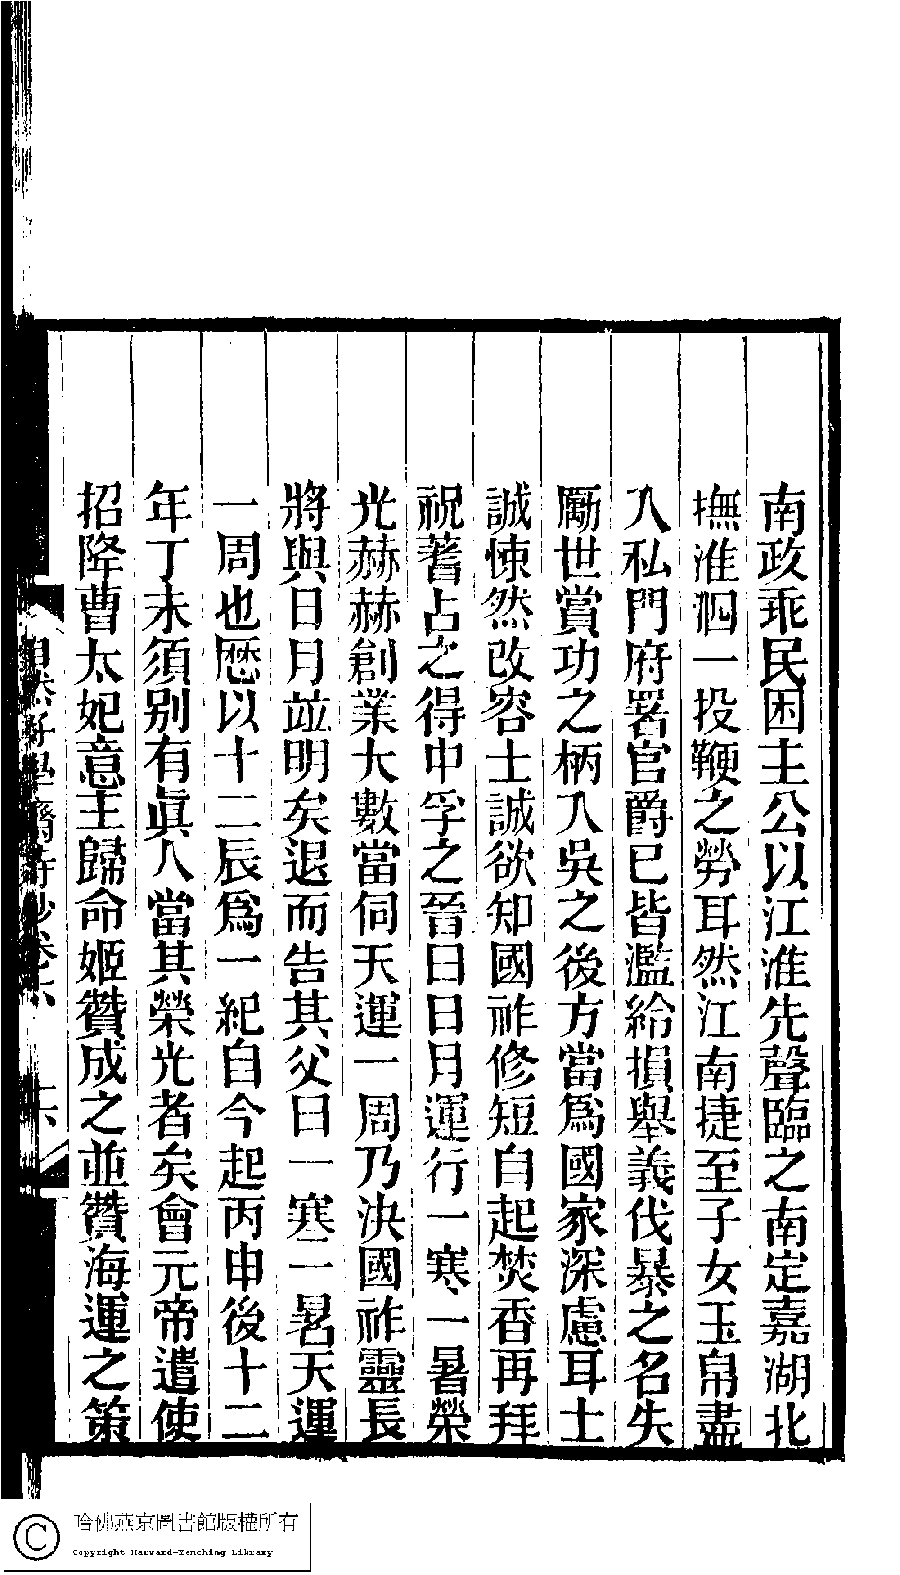 南政乖民困主公以江淮先聲臨之南定嘉湖北
撫淮泗一投鞭之勞耳然江南捷至子女玉帛盡
入私門府署官爵已皆濫給損舉義伐暴之名失
厲世賞功之柄入吳之後方當爲國家深慮耳士
誠悚然改容士誠欲知國祚修短自起焚香再拜
祝蓍占之得中孚之晉曰日月運行一寒一暑榮
光赫赫創業大數當伺天運一周乃決國祚靈長
將與日月竝明矣退而告其父曰一寒一暑天運
一周也歷以十二辰爲一紀自今起丙申後十二
年丁未須别有眞人當其榮光者矣會元帝遣使
招降曹太妃意主歸命姬贊成之並贊海運之策
自然好學齋詩鈔卷六
十六
哈佛燕京圖書館版權所有
Copyright Harvard-Yenching Library